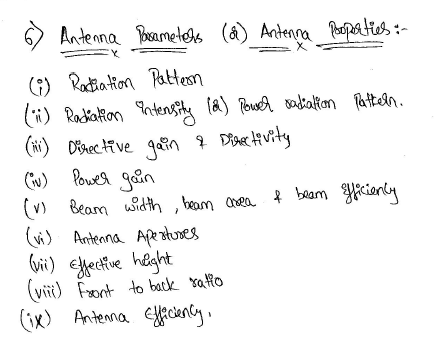 6) Antenna Parameters (or) Antenna Properties :-
(i) Radiation Pattern
(ii) Radiation Intensity (or) Power radiation Pattern.
(iii) Directive gain & Directivity
(iv) Power gain
(v) Beam width, beam area & beam efficiency
(vi) Antenna Apertures
(vii) Effective height
(viii) Front to back ratio
(ix) Antenna Efficiency.